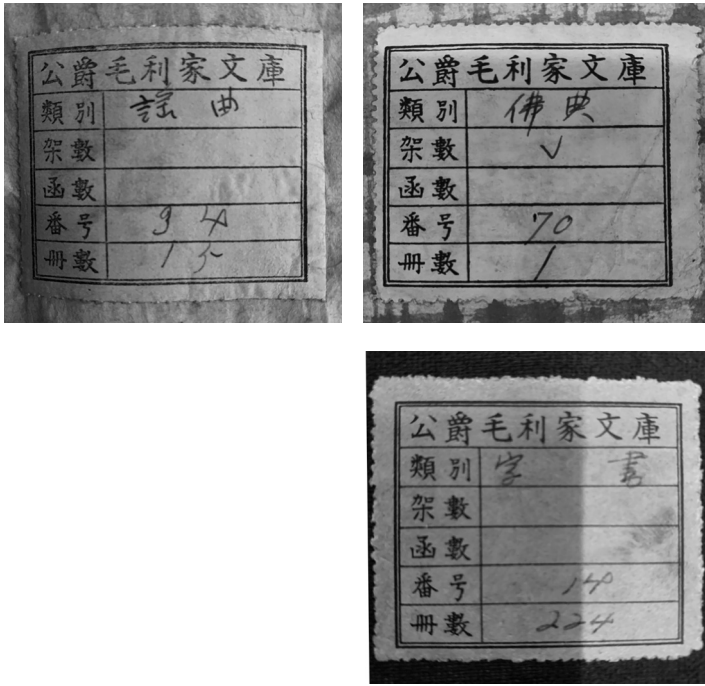 公爵毛利家文庫
類別 謡曲
架數
函數
番号 94
冊數 15
公爵毛利家文庫
類別 佛典
架數 V
函數
番号 70
冊數 1
公爵毛利家文庫
類別 字書
架數
函數
番号 14
冊數 224